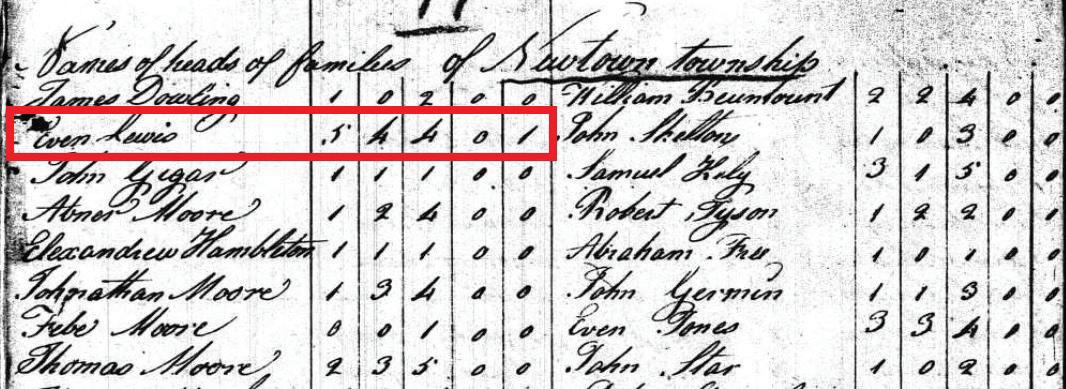 Names of heads of families of Newtown township
James Dowling 1 0 2 0 0 William 2 2 4 0 0
Even Lewis 5 4 4 0 1 John Skelton 1 0 3 0 0
John Gegar 1 1 1 0 0 Samuel 3 1 5 0 0
Abner Moore 1 2 4 0 0 Robert Tyson 1 2 2 0 0
Elexandrew Hambleton 1 1 1 0 0 Abraham Free 1 0 1 0 0
Johnathan Moore 1 3 4 0 0 John Germin 1 1 3 0 0
Febe Moore 0 0 1 0 0 Even Jones 3 3 4 0 0
Thomas Moore 2 3 5 0 0 John Star 1 0 2 0 0